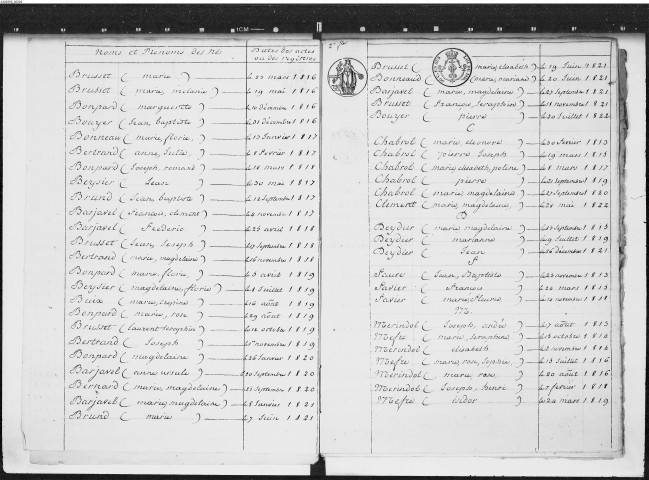 Noms et Prenoms des Nés
Dates des actes
ou des registres
Brusset ( marie ) le 22 mars 1816
Brusset ( marie, mélanie ) le 19 mai 1816
Bonpard ( marguerite ) décembre 1816
Bouyer ( Jean baptiste ) le 31 décembre 1816
Bonneau ( marie, florie, ) le 15 Janvier 1817
Bertrand ( anne, Julie, ) le 8 février 1817
Bonpard ( Joseph, ) mars 1818
Beysier ( Jean ) le 30 mai 1817
Brund ( Jean, baptiste ) Septembre 1817
Barjavel ( françois, clément ) novembre 1817
Barjavel ( fréderic ) le 25 avril 1818
Brusset ( Jean, Joseph ) Septembre 1818
Bertrand ( marie, magdelaine ) novembre 1818
Bonpard ( marie, florie, ) le 3 avril 1819
Beysier ( magdelaine, florie ) Juillet 1819
Buix ( marie, ) août 1819
Bonpard ( marie, rose ) le 29 août 1819
Brusset ( laurent Seraphin ) octobre 1819
Bertrand ( Joseph ) novembre 1819
Bonpard ( magdelaine ) le 26 Janvier 1820
Barjavel ( anne ursule ) Septembre 1820
Bernard ( marie, magdelaine ) Septembre 1820
Barjavel ( marie, magdelaine ) Janvier 1821
Brund ( marie ) le 7 Juin 1821
Brusset ( marie, elisabeth ) le 19 Juin 1821
Bonneaud ( marie, mariane ) le 20 Juin 1821
Barjavel ( marie, magdelaine ) le 27 Septembre 1821
Brusset ( françois, Seraphin ) novembre 1821
Bouyer ( pierre ) le 30 Juillet 1822
C
Chabrol ( marie eleonore ) fevrier 1813
Chabrol ( pierre Joseph ) le 19 mars 1815
Chabrol ( marie, elisabeth, ) le 8 mars 1817
Chabrol ( pierre ) Septembre 1819
Chabrol ( marie magdelaine ) Septembre 1820
Clement ( marie, magdelaine, ) mai 1822
B
Beydier ( marie, magdelaine ) Septembre 1813
Beydier ( marianne ) le 9 Juillet 1819
Beydier ( Jean ) décembre 1821
f
Faure ( Jean, Baptiste ) novembre 1813
Favier ( françois ) mars 1815
Favier ( marie, fleurie, ) novembre 1818
M.
Merindol ( Joseph, andré ) le 7 août 1813
Meffre ( marie, Seraphine ) octobre 1814
Mérindol ( elisabeth ) novembre 1814
Meffre ( marie, rose, Sophie, ) Juillet 1816
Merindol ( marie, rose, ) le 20 août 1816
Merindol ( Joseph, henri ) fevrier 1818
Meffre ( isidor ) le 24 mars 1819